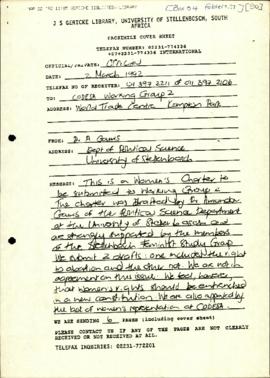 J S GERICKE LIBRARY, UNIVERSITY OF STELLENBOSCH, SOUTH
AFRICA
FACSIMILE COVER SHEET
TELEFAX NUMBER: 02231-774336
INTERNATIONAL
OFFICIAL/PRIVATE: Official
DATE: 2 March 1992
TELEFAX NO OF RECEIVER: 011 397 2211 of 011 397
TO: CODESA Working Group 2
ADDRESS: World Trade Centre Kempton Park
FROM: Dr A Gouws
ADDRESS: Dept of Political Science
University of Stellenbosch
MESSAGE: This is a Women's Charter to
be submitted to Working Group 2
The charter was drafted by Dr Amanda
Gouws of the Political Science Department
at the University of Stellenbosch and
are strongly supported by the members
of the Stellenbosch Feminist Study Group
We submit 2 drafts: one includes the right
to abortion and the other not. We are not in
agreement on this issue. We feel, however
that women's rights should be entrenched
in a new constitution. We are also appalled by
the lack of women's representation at CODESA.
WE ARE SENDING 6 PAGES (including cover sheet)
PLEASE CONTACT US IF ANY OF THE PAGES ARE NOT CLEARLY
RECEIVED OR NOT RECEIVED AT ALL.
TELEFAX INQUIRIES: 02231-772201